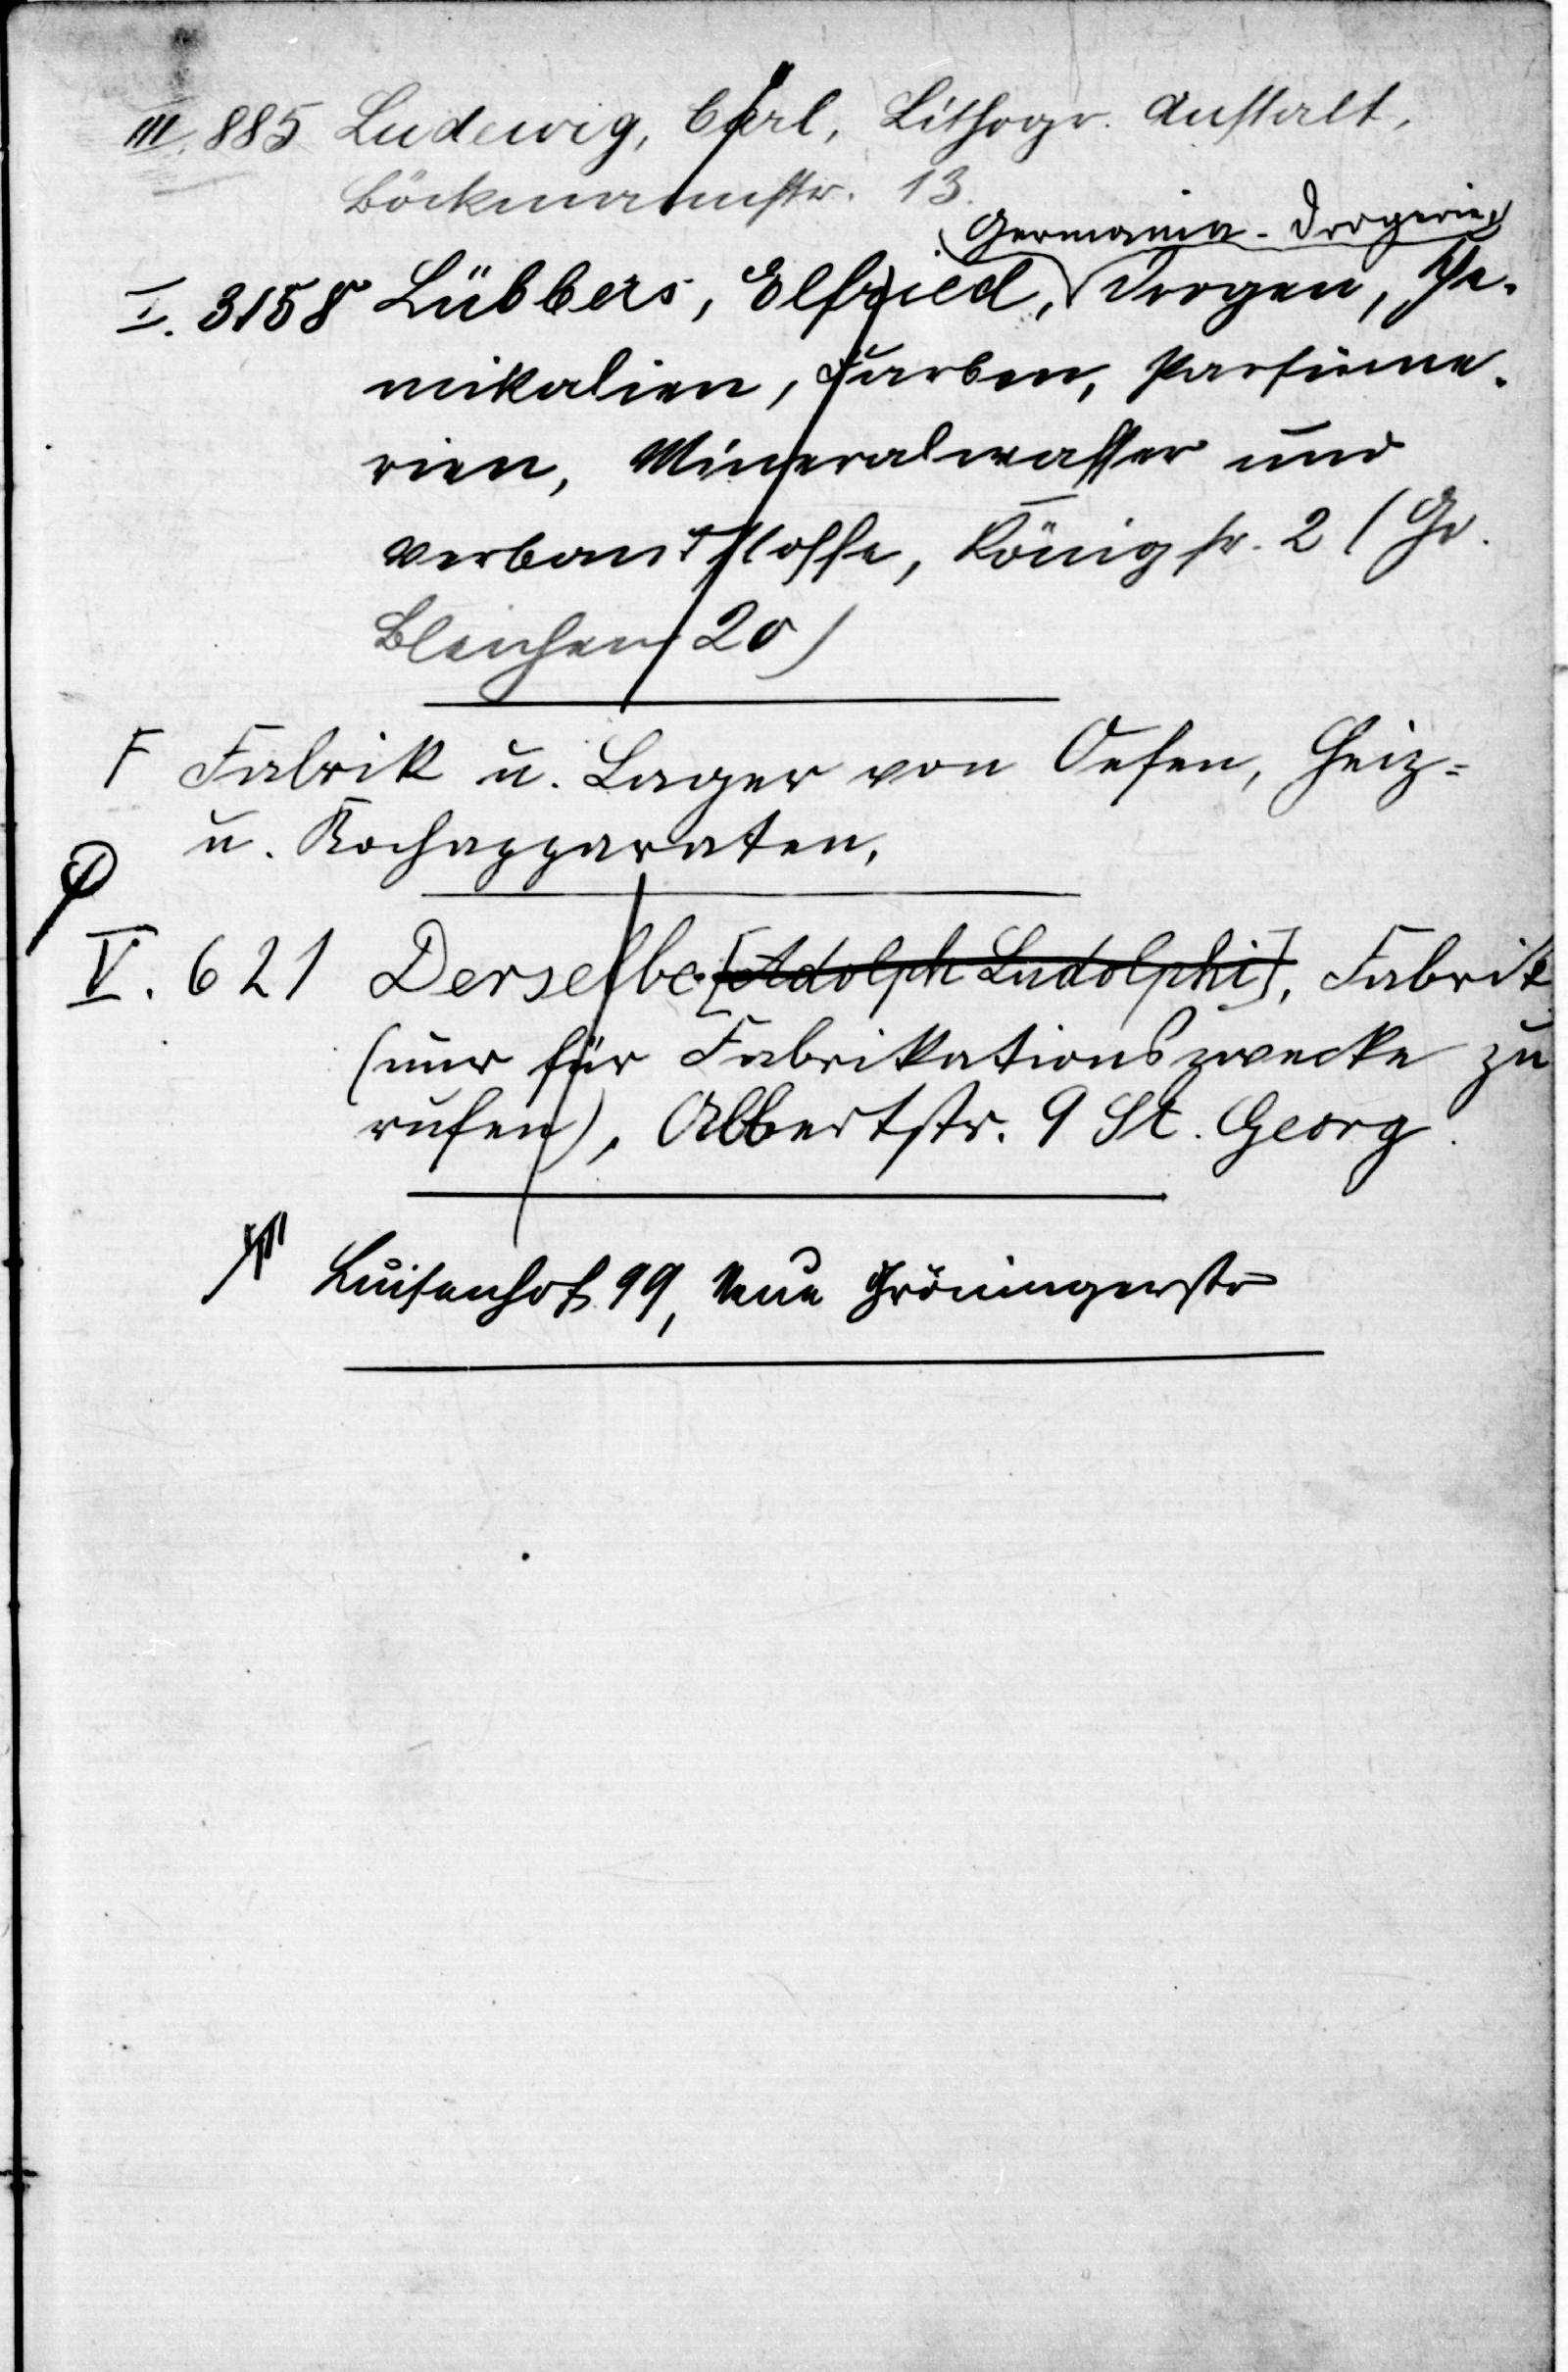 III. 885 Ludewig, Carl, Lithogr. Anstalt,
Böckmannstr. 13.
Germania-Drogerie,
I. 3158 Lübbers, Elfried, Drogen, Che-
mikalien, Farben, Parfüme-
rien, Mineralwasser und
Verbandstoffe, Königstr. 2 (Gr.
Bleichen 20)
F Fabrik u. Lager von Oefen, Heiz-
u. Kochapparaten,
V. 621 Derselbe [Adolph Ludolphi], Fabrik
(nur für Fabrikationszwecke zu
rufen), Albertstr. 9 St. Georg.
Luisenhof 99, Neue Gröningerstr